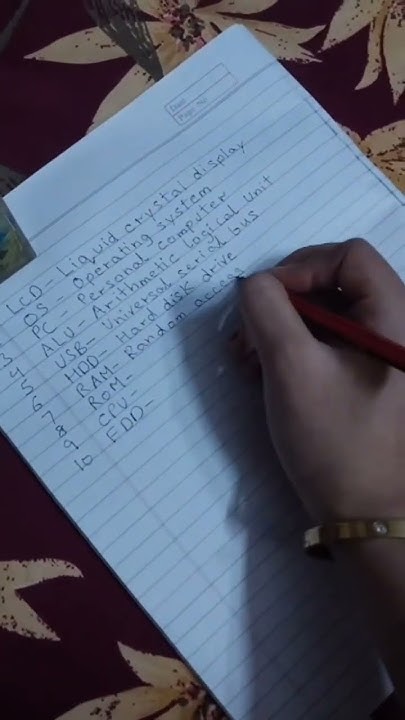 Date
Page No
LCD - Liquid crystal display
OS - Operating system
3 PC - Personal computer
4 ALU - Arithmetic logical unit
5 USB - Universal serial bus
6 HDD - Hard disk drive
7 RAM - Random access
8 ROM -
9 CPU -
10 FDD -